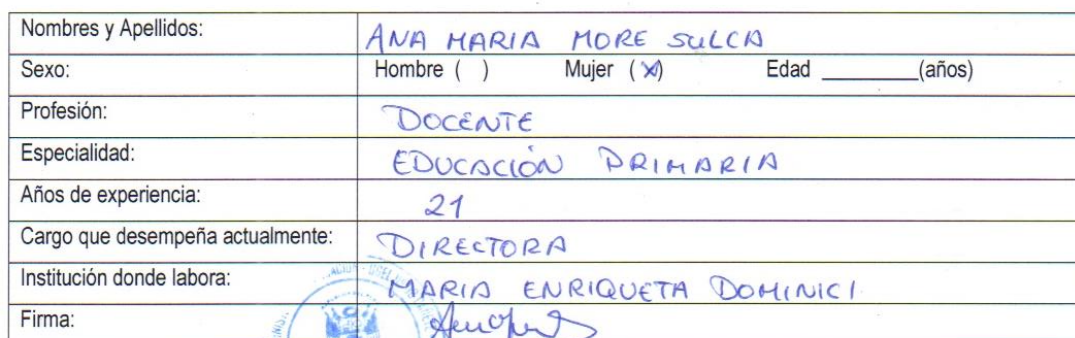 Nombres y Apellidos: ANA MARIA MORE SULCA
Sexo: Hombre ( ) Mujer (X) Edad ________(años)
Profesión: DOCENTE
Especialidad: EDUCACIÓN PRIMARIA
Años de experiencia: 21
Cargo que desempeña actualmente: DIRECTORA
Institución donde labora: MARIA ENRIQUETA DOMINICI
Firma: